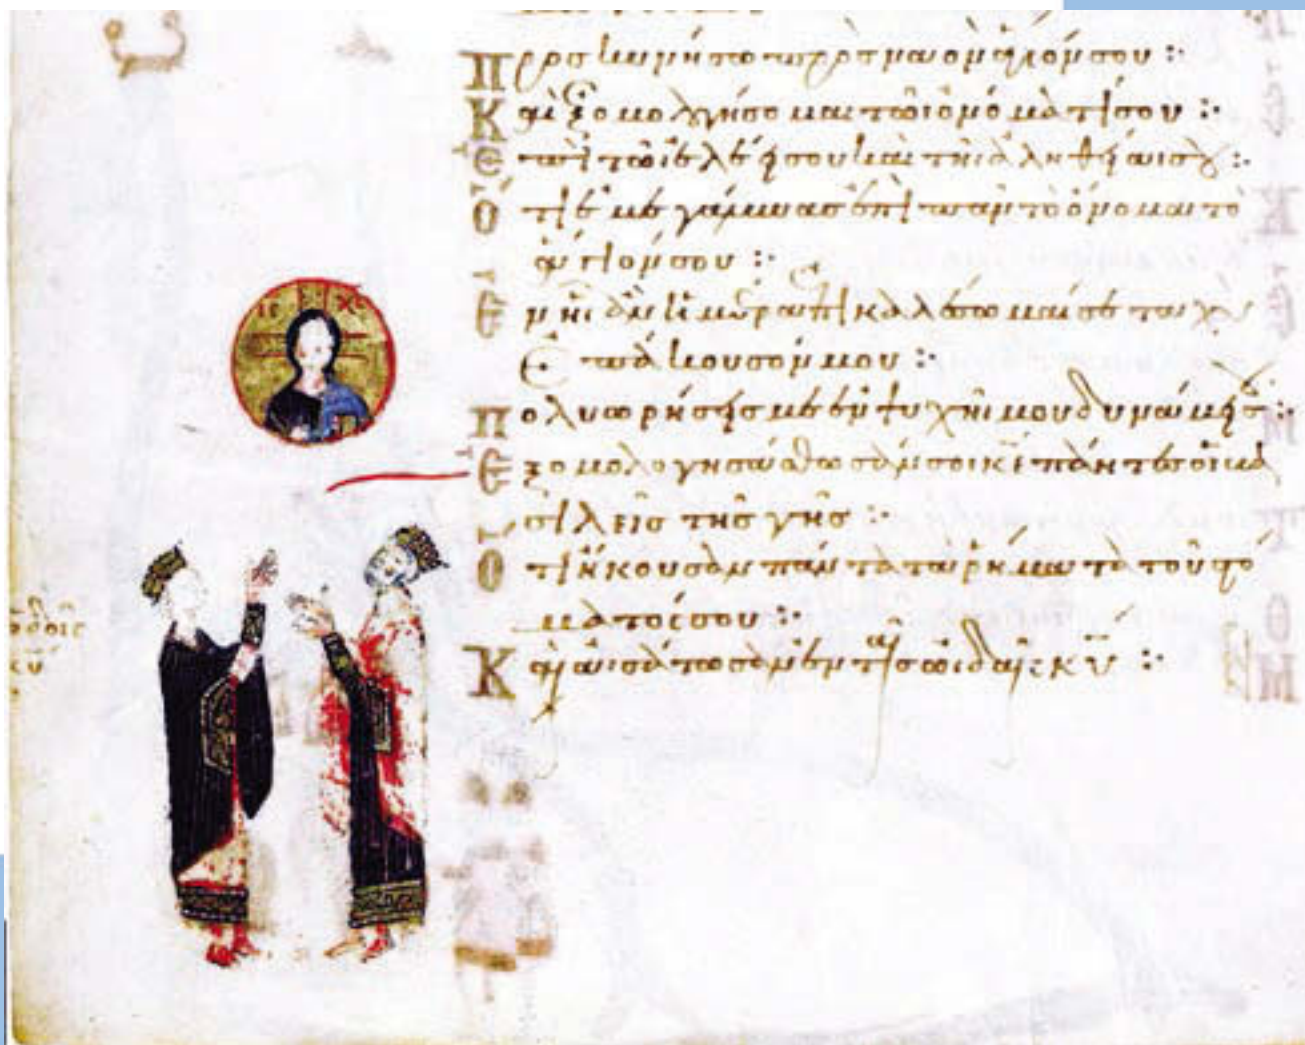 Προσκυνήσω πρὸς ναὸν ἅγιόν σου :
Καὶ ἐξομολογήσομαι τῶι ὀνόματί σου :
Ἐπὶ τῶι ἐλέει σου καὶ τῆι ἀληθείαι σου :
Ὅτι ἐμεγάλυνας ἐπὶ πᾶν τὸ ὄνομα τὸ
ἅγιόν σου :
Ἐν ἧι ἂν ἡμέρα ἐπικαλέσωμαί σε ταχὺ
ἐπάκουσόν μου :
ΙC ΧC
Πολυωρήσεις με ἐν ψυχῆι μου δυνάμει σου :
Ἐξομολογησάσθωσάν σοι κε πάντες οἱ βα
σιλεῖς τῆς γῆς :
Ὅτι ἤκουσαν πάντα τὰ ῥήματα τοῦ στό
ματός σου :
Καὶ ἀισάτωσαν ἐν ταῖς ὠιδαῖς κυ :